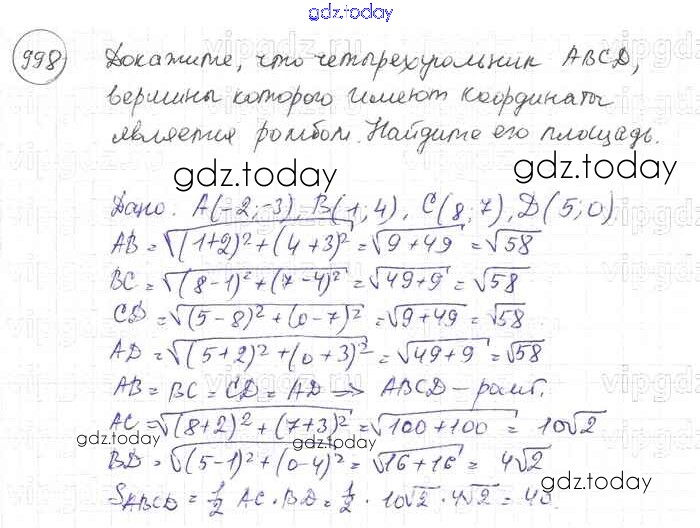 gdz.today
998 Докажите, что четырехугольник ABCD,
вершины которого имеют координаты
является ромбом. Найдите его площадь.
gdz.today gdz.today
Дано: A(-2;-3), B(1;4), C(8;7), D(5;0)
AB = √(1+2)² + (4+3)² = √9+49 = √58
BC = √(8-1)² + (7-4)² = √49+9 = √58
CD = √(5-8)² + (0-7)² = √9+49 = √58
AD = √(5+2)² + (0+3)² = √49+9 = √58
AB = BC = CD = AD ⇒ ABCD – ромб.
AC = √(8+2)² + (7+3)² = √100+100 = 10√2
gdz.today gdz.today
BD = √(5-1)² + (0-4)² = √16+16 = 4√2
S_ABCD = 1/2 AC · BD = 1/2 · 10√2 · 4√2 = 40.
gdz.today